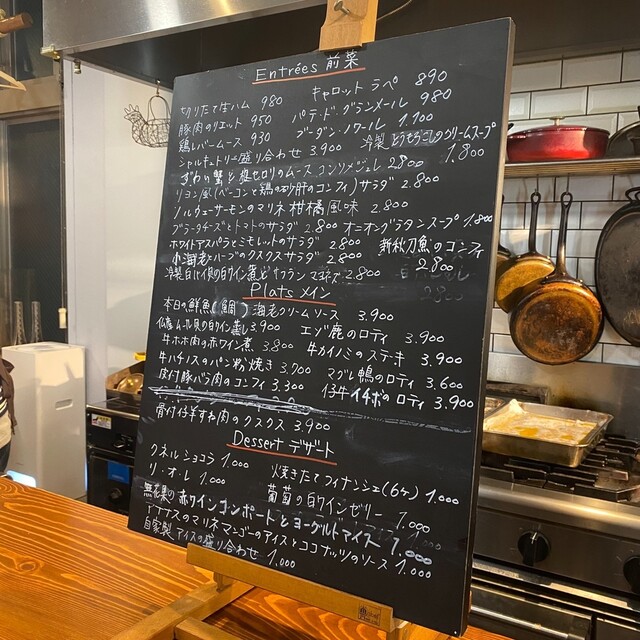 Entrées 前菜
切りたて生ハム 980
キャロット ラペ 890
豚肉のリエット 950
パテ・ド・グランメール 980
鶏レバームース 930
ブーダン・ノワール 1.100
シャルキュトリー盛り合わせ 3.900
冷製 とうもろこしのクリームスープ 1.800
ずわい蟹と根セロリのムース コンソメジュレ 2.800
リヨン風(ベーコンと鶏の砂肝のコンフィ)サラダ 2.800
ノルウェーサーモンのマリネ 柑橘風味 2.800
ブラータチーズとトマトのサラダ 2.800
オニオングラタンスープ 1.800
ホワイトアスパラとミモレットのサラダ 2.800
新秋刀魚のコンフィ 2800
小海老とハーブのクスクスサラダ 2.800
冷製白バイ貝の白ワイン煮 サフランマヨネーズ 2.800
Plats メイン
本日の鮮魚(鯛) 海老クリームソース 3.900
ムール貝の白ワイン蒸し 3.900
エゾ鹿のロティ 3.900
牛ホホ肉の赤ワイン煮 3.800
牛カイノミのステーキ 3.900
牛ハチノスのパン粉焼き 3.200
マグレ鴨のロティ 3.600
皮付豚バラ肉のコンフィ 3.300
仔牛イチボのロティ 3.900
骨付仔羊すね肉のクスクス 3.900
Dessert デザート
クネルショコラ 1.000
焼きたてフィナンシェ(6ケ) 1.000
リ・オ・レ 1.000
葡萄の白ワインゼリー 1.000
無花果の赤ワインコンポートとヨーグルトアイス 1.000
アナナスのマリネ マンゴーのアイスとココナッツのソース 1.000
自家製アイスの盛り合わせ 1.000